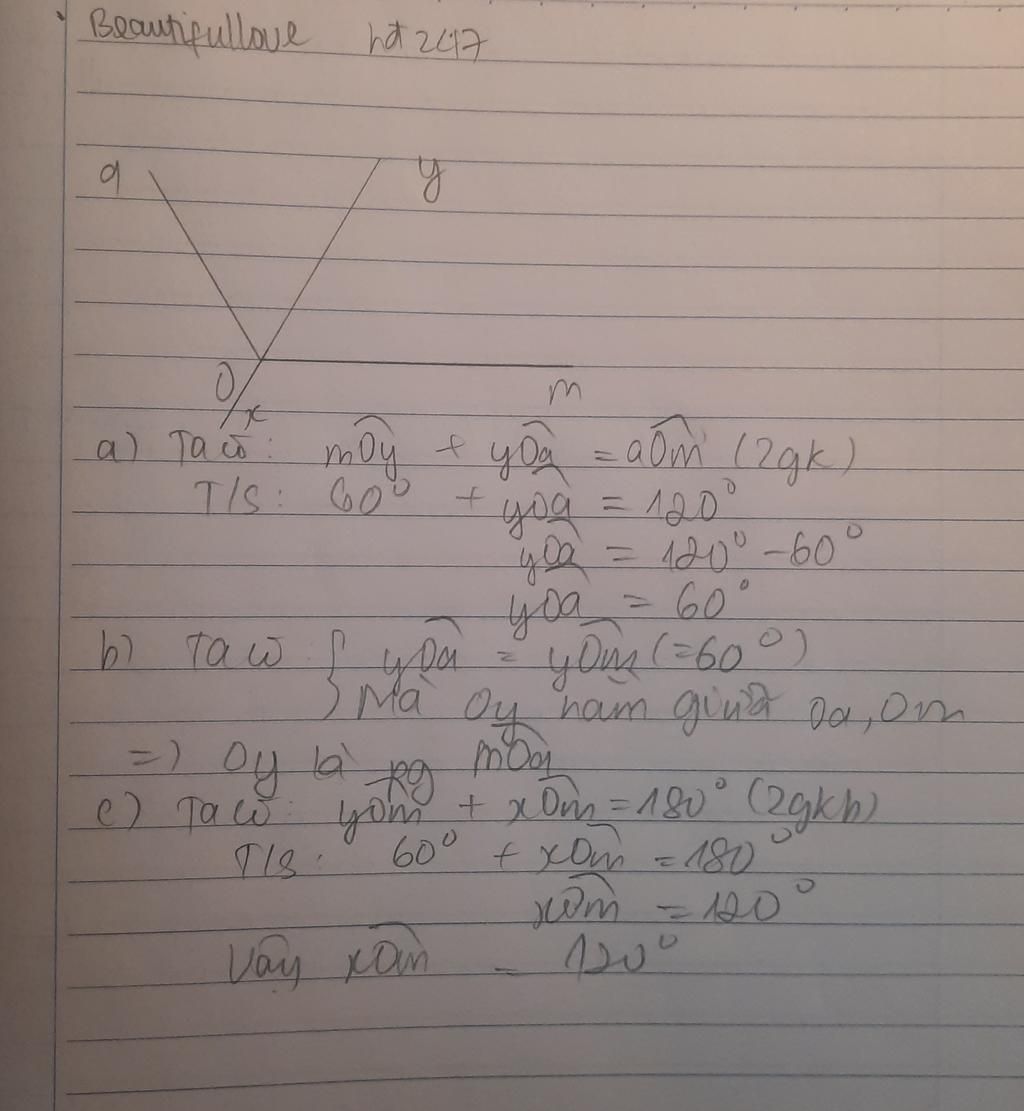 Beautifullove hdt247
a y
O m
x
a) Ta có: mÔy + yÔa = aÔm (2gk)
T/s: 60° + yÔa = 120°
yÔa = 120° - 60°
yOa = 60°
b) Ta có { yÔa = yÔm (=60°)
Mà Oy nằm giữa Oa, Om
=) Oy là pg mÔa
c) Ta có: yÔm + xÔm = 180° (2gkb)
T/s: 60° + xÔm = 180°
xÔm = 120°
Vậy xÔm = 120°